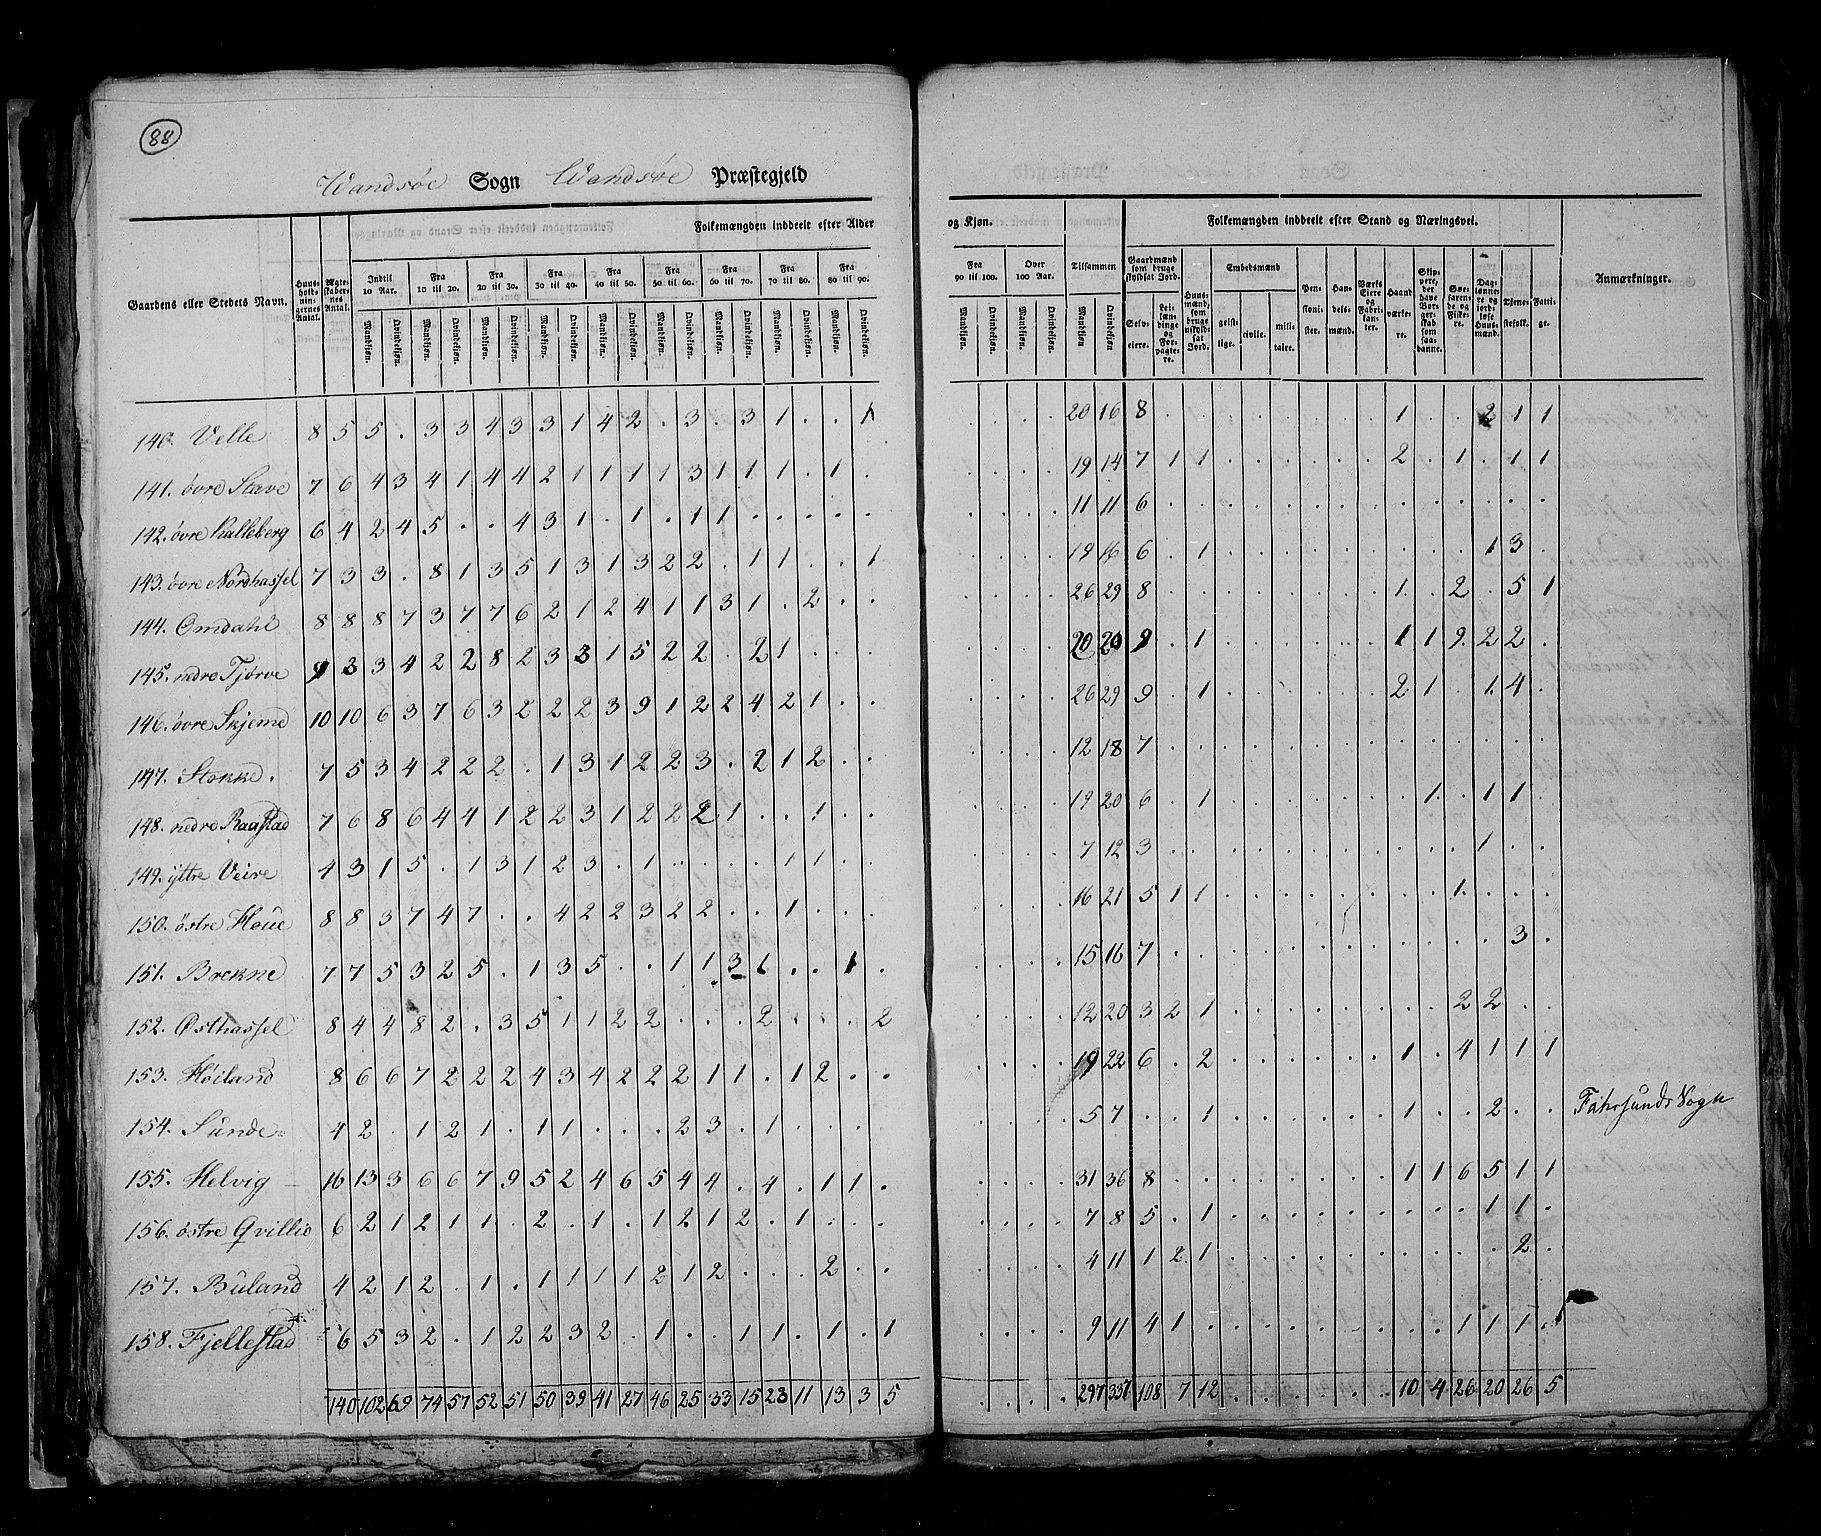 88
Vandsøe Sogn Vandsøe Præstegjeld
Folkemængden inddeelt efter Alder og Kjøn. Folkemængden inddeelt efter Stand og Næringsvei.
Gaardens eller Stedets Navn. Huus-holdningernes Antal. Ægteskabernes Antal. Indtil 10 Aar. Fra 10 til 20. Fra 20 til 30. Fra 30 til 40. Fra 40 til 50. Fra 50 til 60. Fra 60 til 70. Fra 70 til 80. Fra 80 til 90. Fra 90 til 100. Over 100 Aar. Tilsammen Gaardmænd som bruge skyldsat Jord. Huusmænd, som bruge uskyldsat Jord. Embedsmænd Pensionister. Handelsmænd. Værks Eiere og Fabrikanter. Haandværkere. Skippere, der have Borgerskab som saadanne. Søefarende og Fiskere. Daglønnere og jordløse Huusmænd. Tjenestefolk. Fattige. Anmærkninger.
Mandkjøn. Qvindekjøn. Mandkjøn. Qvindekjøn. Mandkjøn. Qvindekjøn. Mandkjøn. Qvindekjøn. Mandkjøn. Qvindekjøn. Mandkjøn. Qvindekjøn. Mandkjøn. Qvindekjøn. Mandkjøn. Qvindekjøn. Mandkjøn. Qvindekjøn. Mandkjøn. Qvindekjøn. Mandkjøn. Qvindekjøn. Mandkjøn. Qvindekjøn Selveiere. Leilændinge og Forpagtere. geistlige. civile. militaire.
140. Velle 8 5 5 . 3 3 4 3 3 1 4 2 . 3 . 3 1 . . 1 . . . . 20 16 8 . . . . . . . . 1 . . 2 1 1
141. övre Stave 7 6 4 3 4 1 4 4 2 1 1 1 1 3 1 1 1 . 1 . . . . . 19 14 7 1 1 . . . . . . 2 . 1 . 1 1
142. övre Kalleberg 6 4 2 4 5 . . 4 3 1 . 1 . 1 1 . . . . . . . . . 11 11 6 . . . . . . . . . . . . . .
143. övre Nordhassel 7 3 3 . 8 1 3 5 1 3 1 3 2 2 . 1 1 . . 1 . . . . 19 16 6 . 1 . . . . . . . . . 1 3 .
144. Omdahl 8 8 8 7 3 7 7 6 2 1 2 4 1 1 3 1 . 2 . . . . . . 26 29 8 . . . . . . . . 1 . 2 . 5 1
145. nedre Tjørve 9 3 3 4 2 2 8 2 3 3 1 5 2 2 . 2 1 . . . . . . . 20 20 9 . 1 . . . . . . 1 1 9 2 2 .
146. övre Skjeme 10 10 6 3 7 6 3 2 2 2 3 9 1 2 2 4 2 1 . . . . . . 26 29 9 . 1 . . . . . . 2 1 . 1 4 .
147. Stokke. 7 5 3 4 2 2 2 . 1 3 1 2 2 3 . 2 1 2 . . . . . . 12 18 7 . . . . . . . . . . . . . .
148. nedre Raastad 7 6 8 6 4 4 1 2 2 3 1 2 2 2 1 . . 1 . . . . . . 19 20 6 . 1 . . . . . . . 1 . 1 1 .
149. yttre Veire 4 3 1 5 . 1 3 1 2 3 . 1 . . . . 1 1 . . . . . . 7 12 3 . . . . . . . . . . . 1 . .
150. östre Houe 8 8 3 7 4 7 . . 4 2 2 3 2 2 . . 1 . . . . . . . 16 21 5 1 1 . . . . . . . . 1 . . .
151. Brekne 7 7 5 3 2 5 . 1 3 5 . . 1 1 3 1 . . 1 . . . . . 15 16 7 . . . . . . . . . . . . 3 .
152. Østhassel 8 4 4 8 2 . 3 5 1 1 2 2 . . . 2 . . . 2 . . . . 12 20 3 2 1 . . . . . . . . 2 2 . .
153. Høiland 8 6 6 7 2 2 2 4 3 4 2 2 2 1 1 . 1 2 . . . . . . 19 22 6 . 2 . . . . . . 1 . 4 1 1 1
154. Sunde 4 2 . 1 2 1 . 1 1 . . . 2 3 . 1 . . . . . . . . 5 7 . . 1 . . . . . . 1 . . 2 . . Fahrsunds Sogn
155. Helvig 16 13 3 6 6 7 9 5 2 4 6 5 4 4 . 4 . 1 1 . . . . . 31 36 8 . . . . . . . . 1 1 6 5 1 1
156. östre Qvillio 6 2 1 2 1 1 . 2 . 1 . 1 2 1 2 . 1 . . . . . . . 7 8 5 . 1 . . . . . . . . . 1 1 .
157. Buland 4 2 1 2 . 1 . 1 1 1 1 2 1 2 . . . 2 . . . . . . 4 11 1 2 1 . . . . . . . . . . 2 .
158. Fjellestad 6 5 3 2 . 1 2 2 3 2 . 1 . . 1 1 . 1 . 1 . . . . 9 11 4 1 . . . . . . . . . 1 1 1 .
140 102 69 74 57 52 51 50 39 41 27 46 25 33 15 23 11 13 3 5 . . . . 297 337 108 7 12 . . . . . . 10 4 26 20 26 5